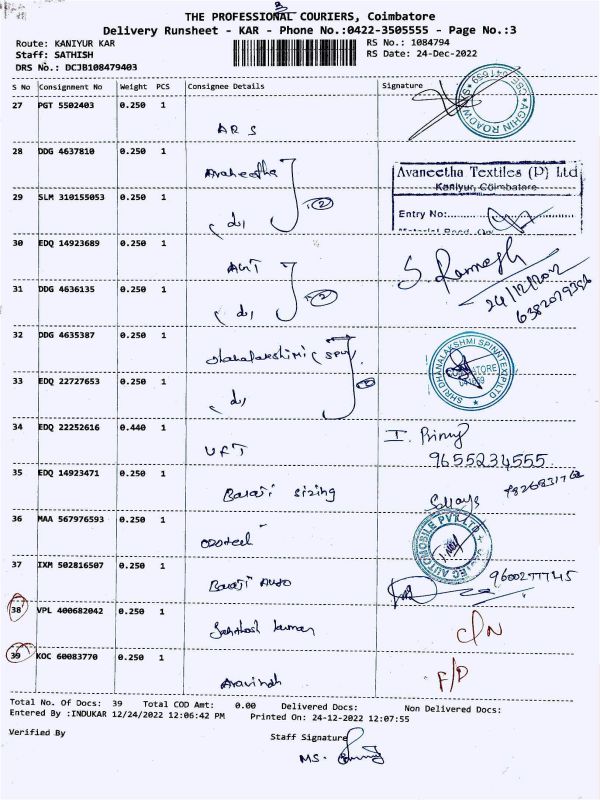 3
THE PROFESSIONAL COURIERS, Coimbatore
Delivery Runsheet - KAR - Phone No.:0422-3505555 - Page No.:3
Route: KANIYUR KAR
RS No.: 1084794
Staff: SATHISH
RS Date: 24-Dec-2022
DRS No.: DCJB108479403
S No Consignment No Weight PCS Consignee Details Signature
27 PGT 5502403 0.250 1
ARS
28 DDG 4637810 0.250 1
Avaneetha
Avaneetha Textiles (P) Ltd
Kaniyur, Coimbatore
29 SLM 310155053 0.250 1
2
Entry No:
30 EDQ 14923689 0.250 1
S. Ramesh
24/12/2022
31 DDG 4636135 0.250 1
2
32 DDG 4635387 0.250 1
SHRI DHANALAKSHMI SPINNTEX P LTD
33 EDQ 22727653 0.250 1
34 EDQ 22252616 0.440 1
UFT
9655234555
35 EDQ 14923471 0.250 1
Balaji sizing
36 MAA 567976593 0.250 1
AUTOMOBILE PVT LTD
37 IXM 502816507 0.250 1
Balaji Auto
38 VPL 400682042 0.250 1
Santhosh kumar
C/N
39 KOC 60083770 0.250 1
Aravindh
F/D
Total No. Of Docs: 39 Total COD Amt: 0.00 Delivered Docs: Non Delivered Docs:
Entered By :INDUKAR 12/24/2022 12:06:42 PM Printed On: 24-12-2022 12:07:55
Verified By
Staff Signature
MS.